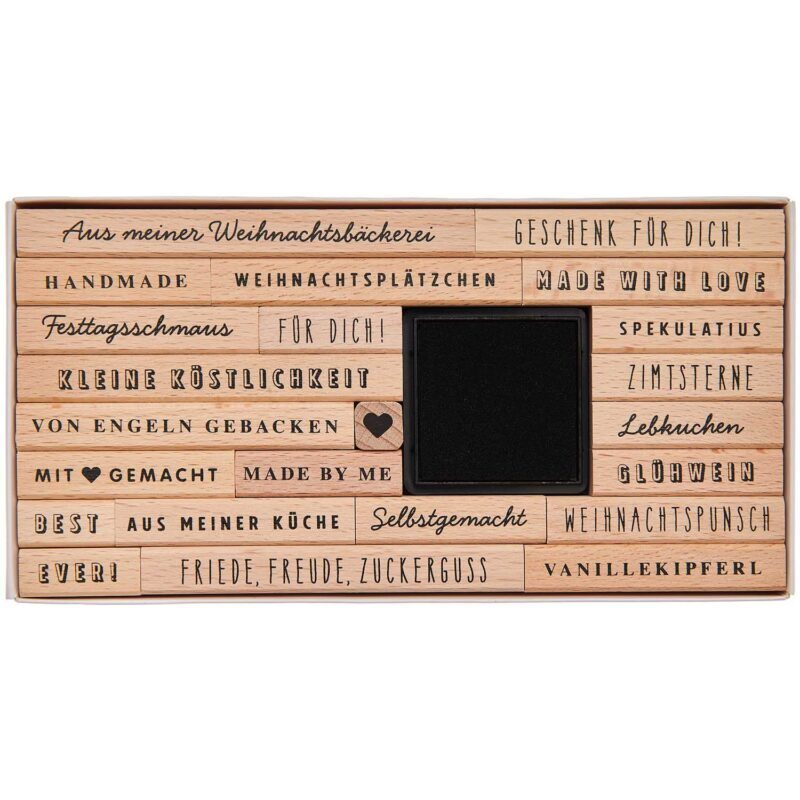 Aus meiner Weihnachtsbäckerei GESCHENK FÜR DICH!
HANDMADE WEIHNACHTSPLÄTZCHEN MADE WITH LOVE
Festtagsschmaus FÜR DICH! SPEKULATIUS
KLEINE KÖSTLICHKEIT ZIMTSTERNE
VON ENGELN GEBACKEN Lebkuchen
MIT ♥ GEMACHT MADE BY ME GLÜHWEIN
BEST AUS MEINER KÜCHE Selbstgemacht WEIHNACHTSPUNSCH
EVER! FRIEDE, FREUDE, ZUCKERGUSS VANILLEKIPFERL